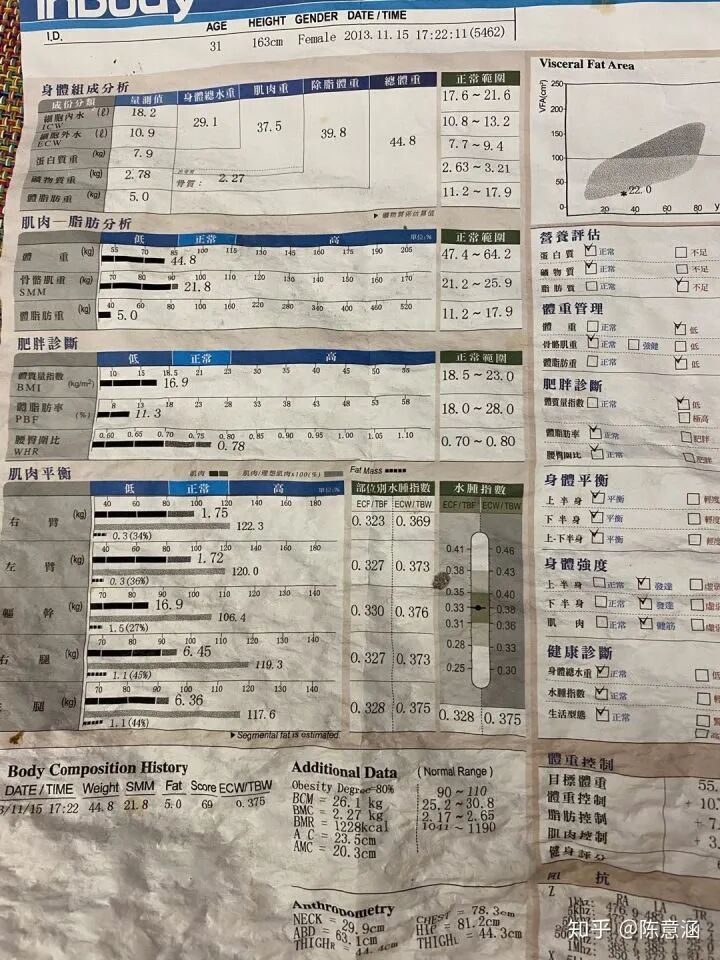 InBody
I.D.
AGE HEIGHT GENDER DATE/TIME
31 163cm Female 2013.11.15 17:22:11(5462)
身體組成分析
成份分類 量測值 身體總水重 肌肉重 除脂體重 總體重 正常範圍
細胞內水 ICW (ℓ) 18.2 17.6 ~ 21.6
細胞外水 ECW (ℓ) 10.9 10.8 ~ 13.2
29.1 37.5 39.8 44.8
蛋白質重 (kg) 7.9 7.7 ~ 9.4
礦物質重 (kg) 2.78 骨質: 2.27 2.63 ~ 3.21
體脂肪重 (kg) 5.0 11.2 ~ 17.9
▶ 礦物質係估算值
肌肉—脂肪分析
低 正常 高 單位:% 正常範圍
體重 (kg) 55 70 85 100 115 130 145 160 175 190 205
44.8 47.4 ~ 64.2
骨骼肌重 SMM (kg) 70 80 90 100 110 120 130 140 150 160 170
21.8 21.2 ~ 25.9
體脂肪重 (kg) 40 60 80 100 160 220 280 340 400 460 520
5.0 11.2 ~ 17.9
肥胖診斷
低 正常 高 正常範圍
體質量指數 BMI (kg/m²) 10 15 18.5 21 23 25 30 35 40 45 50
16.9 18.5 ~ 23.0
體脂肪率 PBF (%) 8 13 18 23 28 33 38 43 48 53 58
11.3 18.0 ~ 28.0
腰臀圍比 WHR 0.60 0.65 0.70 0.75 0.80 0.85 0.90 0.95 1.00 1.05 1.10
0.78 0.70 ~ 0.80
肌肉平衡
肌肉 肌肉/理想肌肉x100(%) Fat Mass
低 正常 高 單位:%
右臂 (kg) 40 60 80 100 120 140 160 180
1.75
122.3
0.3(34%)
左臂 (kg) 40 60 80 100 120 140 160 180
1.72
120.0
0.3(36%)
軀幹 (kg) 70 80 90 100 110 120 130 140
16.9
106.4
1.5(27%)
右腿 (kg) 70 80 90 100 110 120 130 140
6.45
119.3
1.1(45%)
腿 (kg) 70 80 90 100 110 120 130 140
6.36
117.6
1.1(44%)
▶ Segmental fat is estimated.
部位別水腫指數
ECF/TBF ECW/TBW
0.323 0.369
0.327 0.373
0.330 0.376
0.327 0.373
0.328 0.375
水腫指數
ECF/TBF ECW/TBW
0.41 0.46
0.38 0.43
0.35 0.40
0.33 0.38
0.31 0.36
0.28 0.33
0.25 0.30
0.328 0.375
Body Composition History
DATE/TIME Weight SMM Fat Score ECW/TBW
3/11/15 17:22 44.8 21.8 5.0 69 0.375
Additional Data (Normal Range)
Obesity Degree=80% 90 ~ 110
BCM = 26.1 kg 25.2 ~ 30.8
BMC = 2.27 kg 2.17 ~ 2.65
BMR = 1228kcal 1041 ~ 1190
A C = 23.5cm
AMC = 20.3cm
Anthropometry
NECK = 29.9cm CHEST = 78.3cm
ABD = 63.1cm HIP = 81.2cm
THIGHR = 44.4cm THIGHL = 44.3cm
Visceral Fat Area
VFA(cm²)
250
200
150
100
50
0
20 40 60 80 y
22.0
營養評估
蛋白質 正常 不足
礦物質 正常 不足
脂肪質 正常 不足
體重管理
體重 正常 低
骨骼肌重 正常 強健 低
體脂肪重 正常 低
肥胖診斷
體質量指數 正常 低
極高
體脂肪率 正常 肥胖
腰臀圍比 正常 肥胖
身體平衡
上半身 平衡 輕度
下半身 平衡 輕度
上-下半身 平衡 輕度
身體強度
上半身 正常 發達 虛弱
下半身 正常 發達 虛弱
肌肉 正常 健筋 虛弱
健康診斷
身體總水重 正常 低
水腫指數 正常
生活型態 正常
高
體重控制
目標體重 55.
體重控制 + 10.
脂肪控制 + 7.
肌肉控制 + 3.
健身評分
阻抗
Z RA LA TR
1khz: 476.9
知乎 @陈意涵